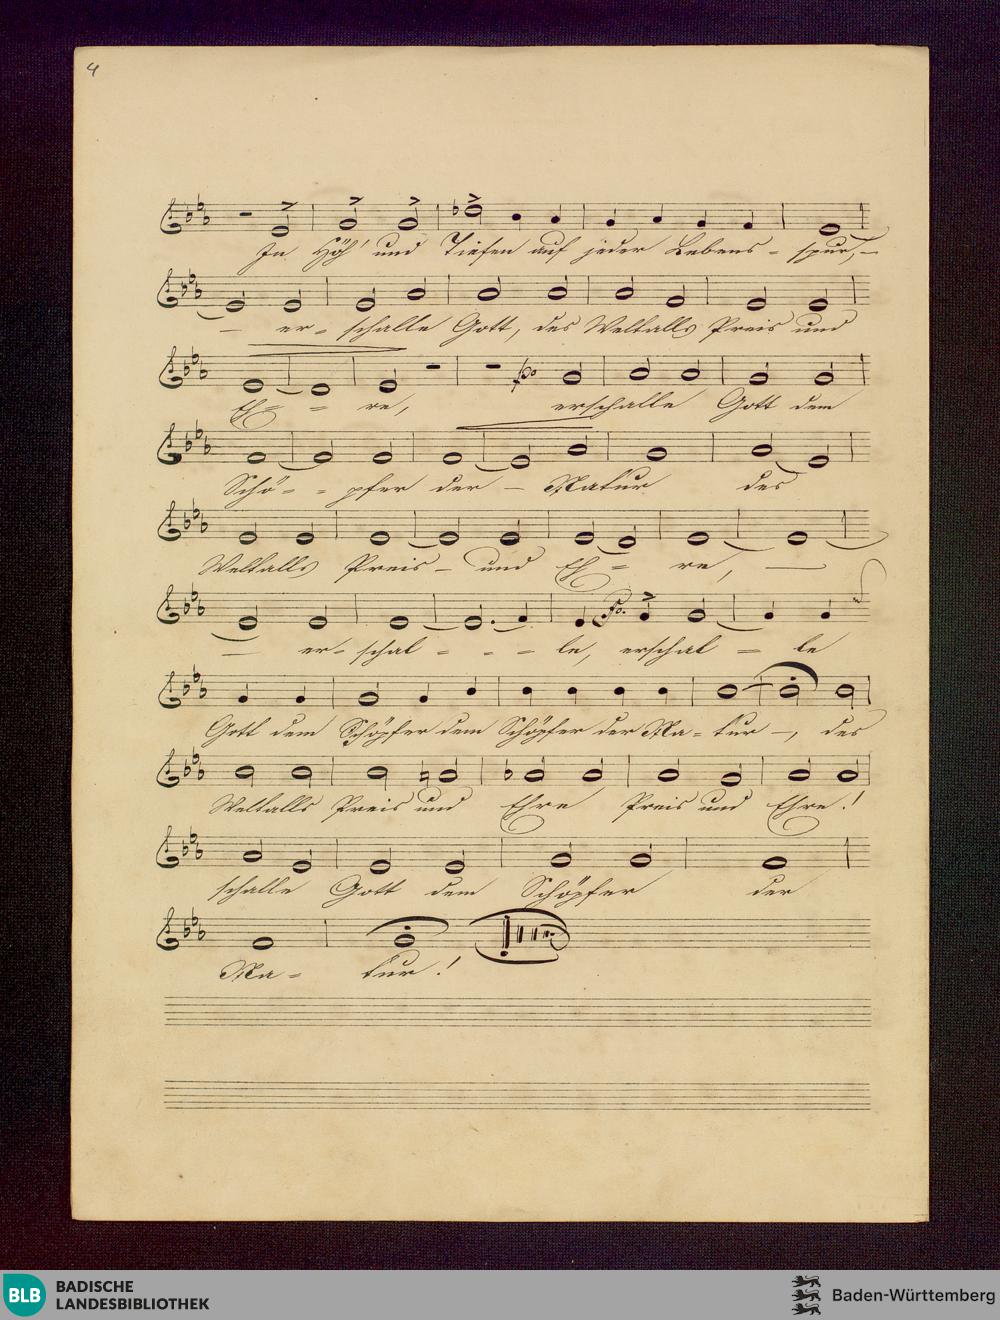 4
In Höh' und Tiefen auf jeder Lebens - spur, -
- er - schalle Gott, des Weltalls Preis und
Eh - - re, erschalle Gott dem
Schö - - pfer der - Natur des
Weltalls Preis - und Eh - re, -
- er - schal - - - le, erschal - le
Gott dem Schöpfer dem Schöpfer der Na - tur -, des
Weltalls Preis und Ehre Preis und Ehre!
schalle Gott dem Schöpfer der
Na - tur!
BLB BADISCHE
LANDESBIBLIOTHEK
Baden-Württemberg